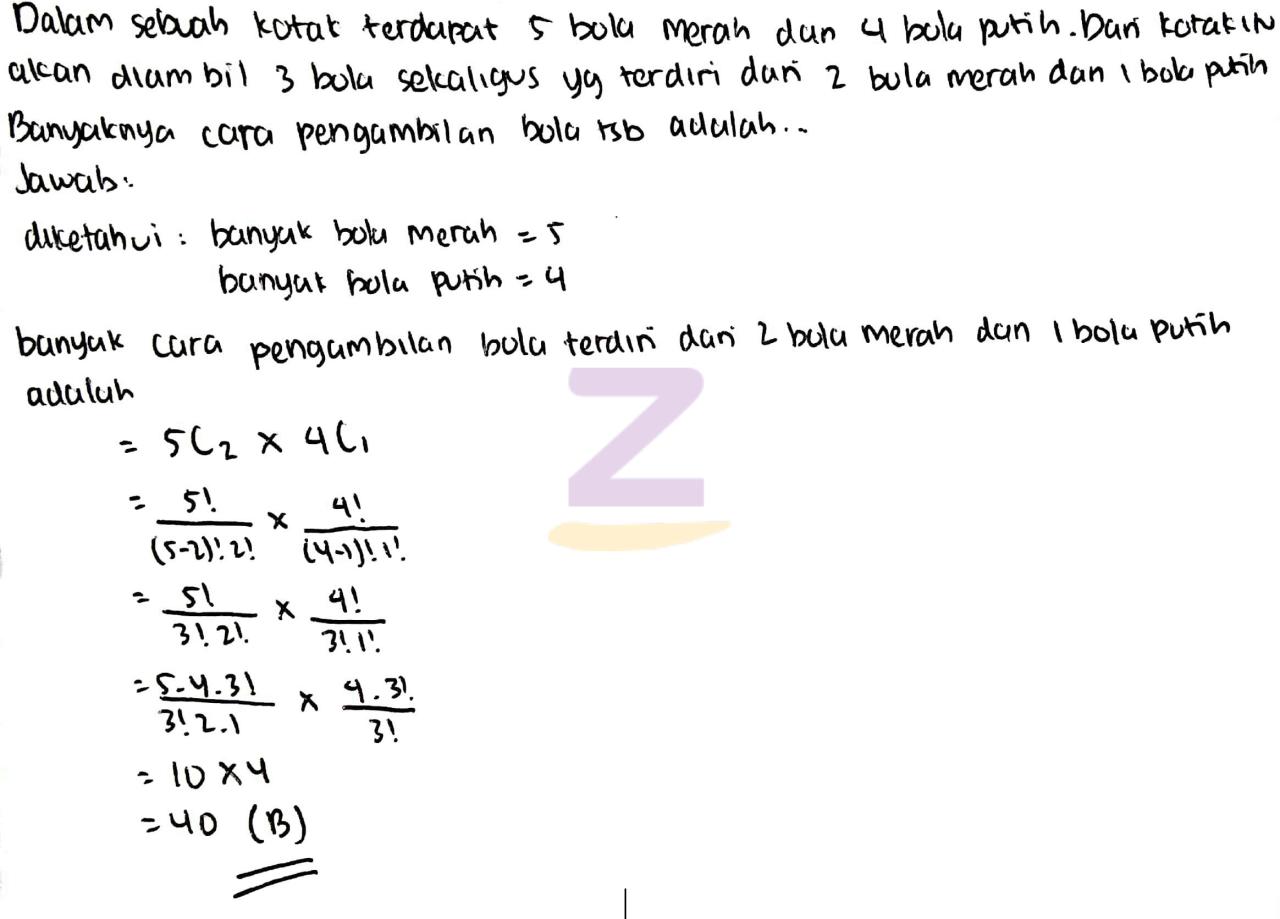 Dalam sebuah kotak terdapat 5 bola merah dan 4 bola putih. Dari kotak ini
akan diambil 3 bola sekaligus yg terdiri dari 2 bola merah dan 1 bola putih
Banyaknya cara pengambilan bola tsb adalah...
Jawab:
diketahui : banyak bola merah = 5
banyak bola putih = 4
banyak cara pengambilan bola terdiri dari 2 bola merah dan 1 bola putih
adalah
= 5C₂ × 4C₁
= 5!/((5-2)! 2!) × 4!/((4-1)! 1!)
= 5!/(3! 2!) × 4!/(3! 1!)
= 5.4.3!/(3! 2.1) × 4.3!/3!
= 10 × 4
= 40 (B)
Z